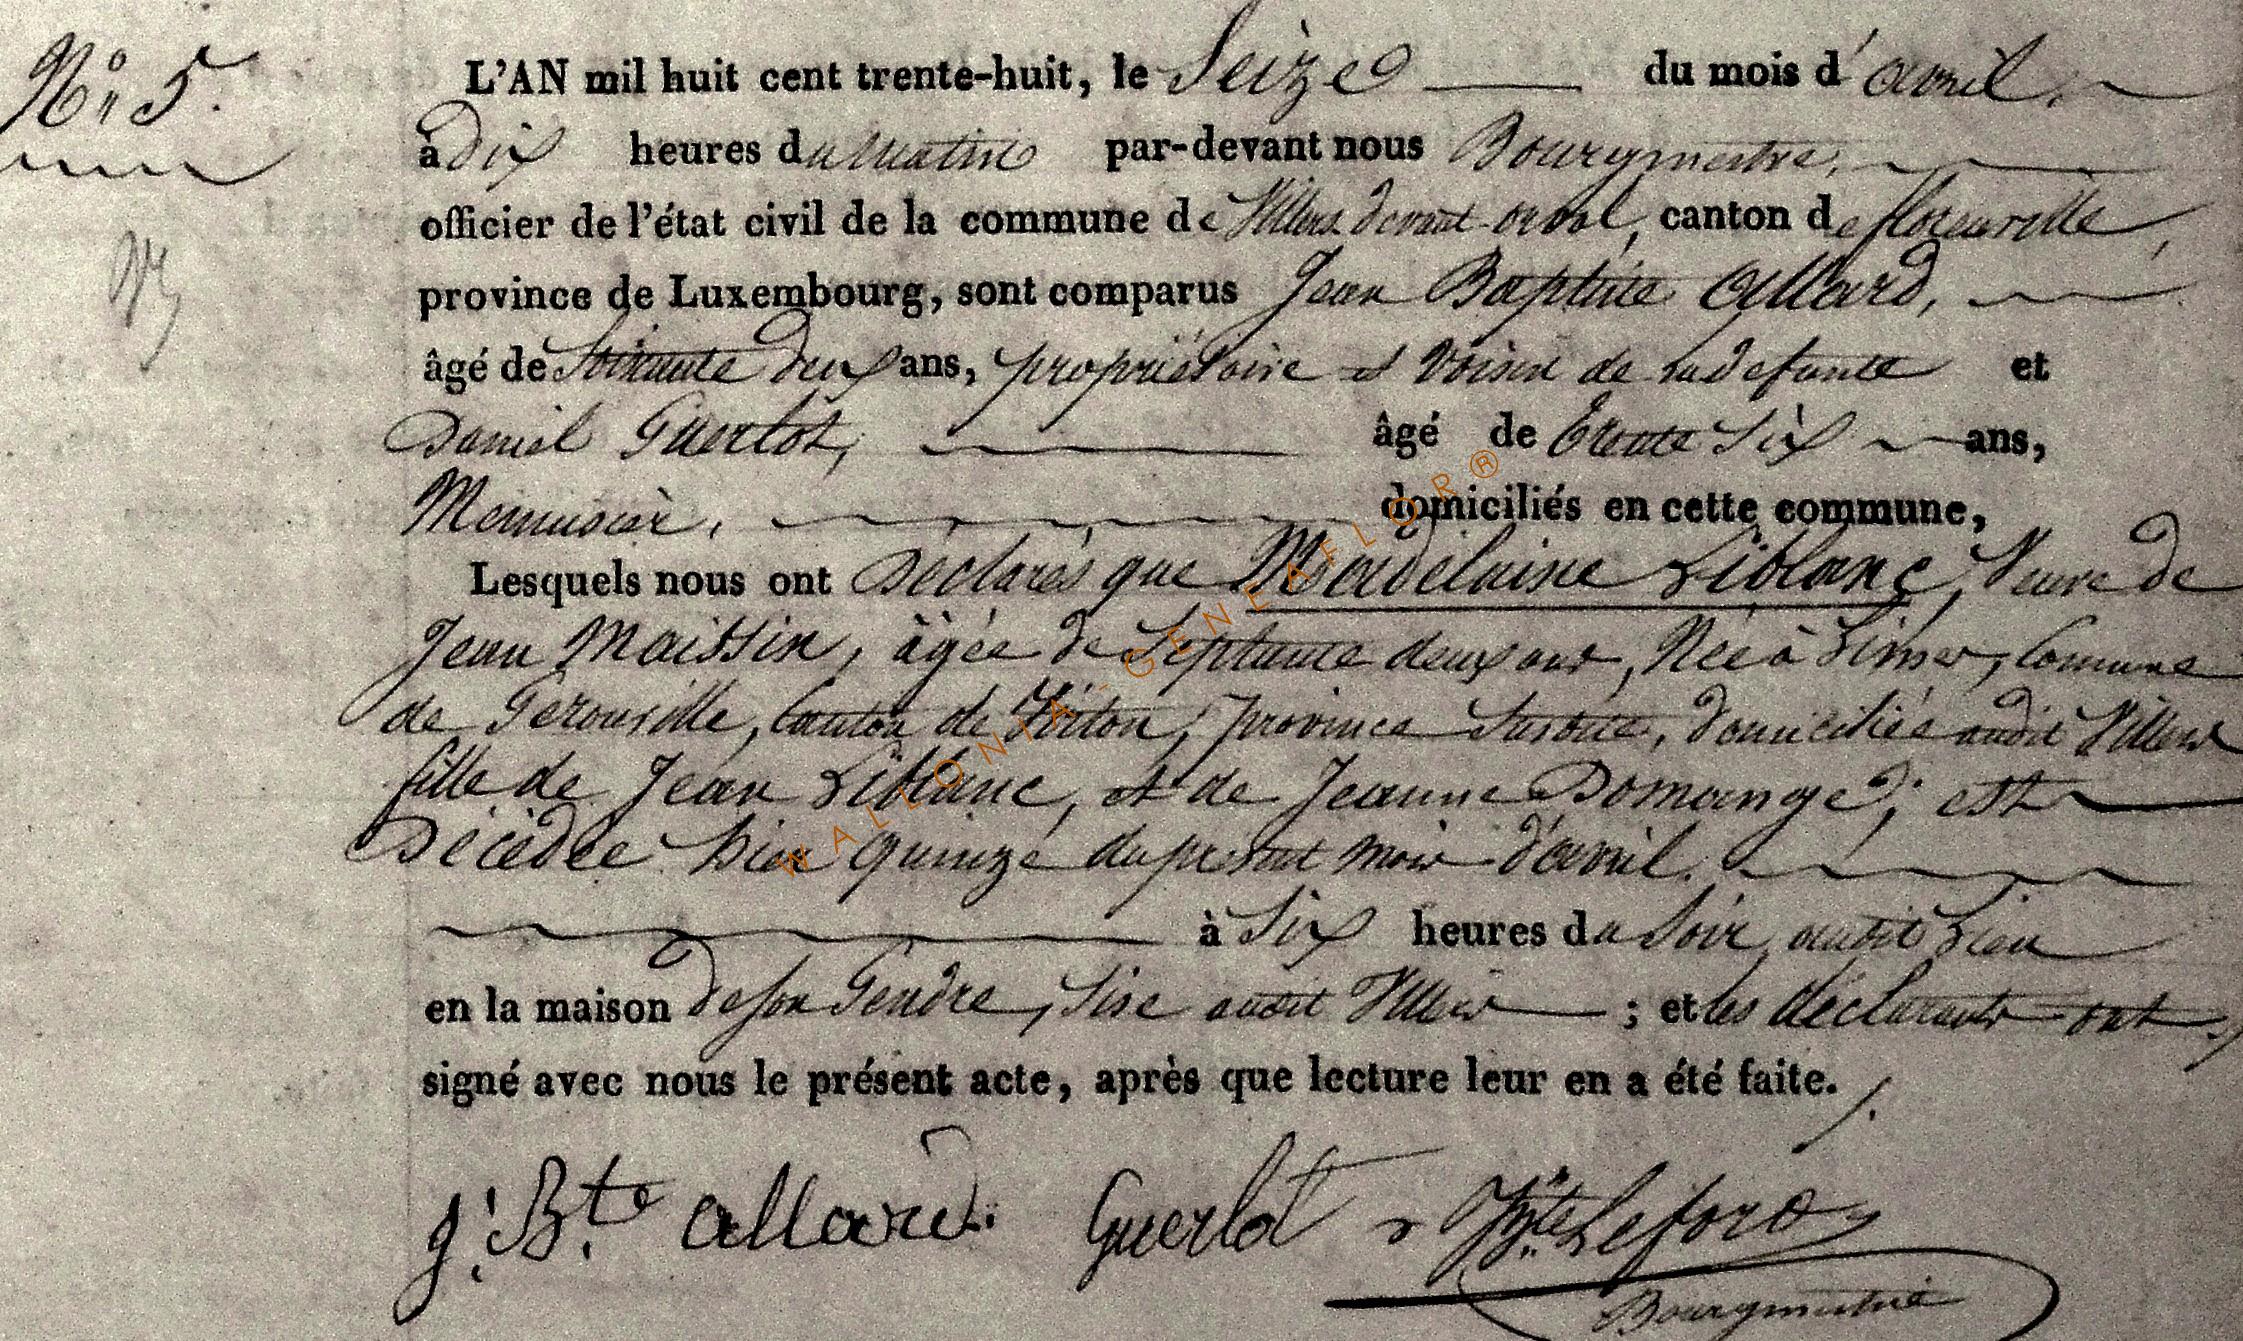 N° 5.
L'AN mil huit cent trente-huit, le Seize du mois d'avril,
à dix heures du matin par-devant nous Bourgmestre,
officier de l'état civil de la commune de Villers devant-orval, canton de florenville,
province de Luxembourg, sont comparus Jean Baptiste Allard,
âgé de Soixante deux ans, propriétaire et voisin de la defunte et
Daniel Guerlot, âgé de trente Six ans,
Menuisier, domiciliés en cette commune,
Lesquels nous ont Déclarés que Maudelaine Liblanc, Veuve de
Jean Maissin, âgée de Septante deux ans, Née à Limes, Commune
de Gerouville, Canton de Virton, province susdite, domiciliée audit Villers
fille de Jean Liblanc, et de Jeanne Domange; est
Décédée hier quinze du présent mois d'avril.
à Six heures du Soir audit Lieu
en la maison de son Gendre, Sise audit Villers ; et les déclarants ont
signé avec nous le présent acte, après que lecture leur en a été faite.
J. Bte allard. Guerlot JBte Lefort
Bourgmestre
WALLONIA-GENEAFLOR®